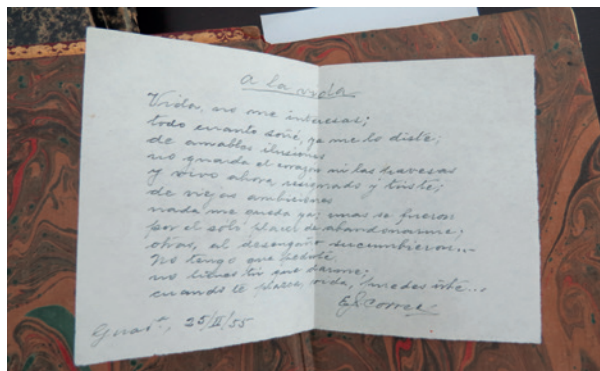 A la vida
Vida, no me interesas;
todo cuanto soñé, ya me lo diste;
de amables ilusiones
no guarda el corazón ni las pavesas
y vivo ahora resignado y triste;
de viejas ambiciones
nada me queda ya; unas se fueron
por el sólo placer de abandonarme;
otras, al desengaño sucumbieron...
No tengo que pedirte
no tienes tú que darme;
cuando te plazca, vida, puedes irte...
Correa
25/II/55